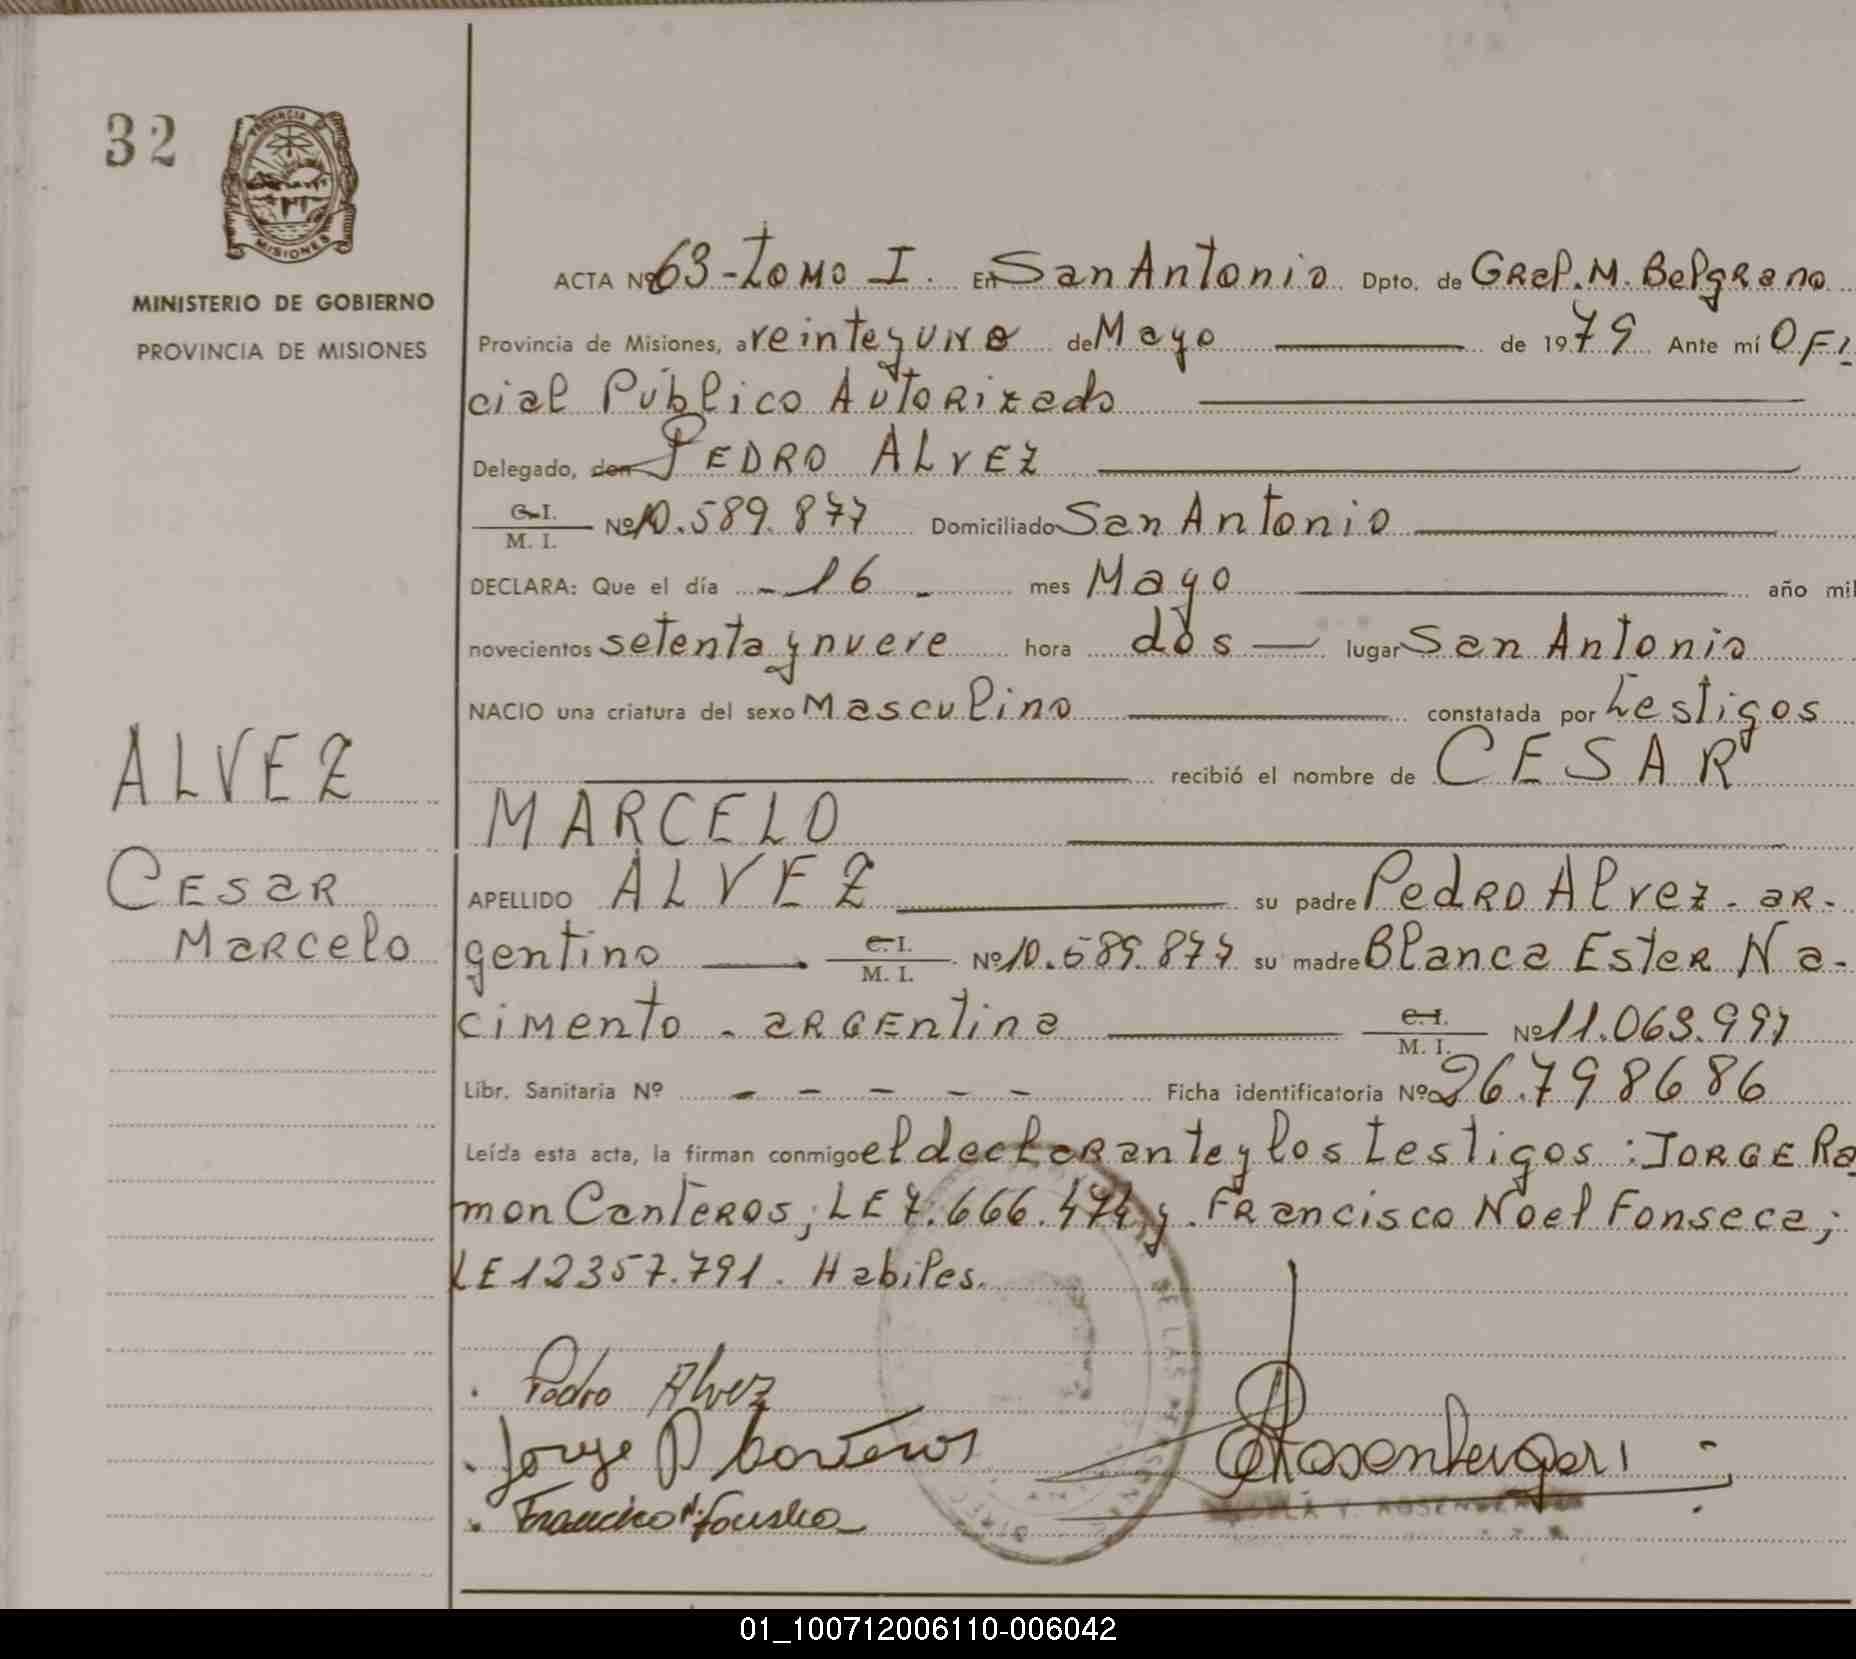 32
PROVINCIA DE
MISIONES
MINISTERIO DE GOBIERNO
PROVINCIA DE MISIONES
ACTA Nº 63-Tomo I. En San Antonio Dpto. de Gral. M. Belgrano
Provincia de Misiones, a veinteyuno de Mayo de 1979 Ante mí Ofi-
cial Público Autorizado
Delegado, don PEDRO ALVEZ
C.I.
M. I. Nº 10.589.877 Domiciliado San Antonio
DECLARA: Que el día - 16 - mes Mayo año mil
novecientos setenta y nueve hora dos — lugar San Antonio
NACIO una criatura del sexo Masculino constatada por testigos
recibió el nombre de CESAR
MARCELO
ALVEZ
Cesar
Marcelo
APELLIDO ALVEZ su padre Pedro Alvez - ar-
gentino C.I.
M. I. Nº 10.589.877 su madre Blanca Ester Na-
cimento - argentina C.I.
M. I. Nº 11.063.997
Libr. Sanitaria Nº - - - - - Ficha identificatoria Nº 26.798686
Leída esta acta, la firman conmigo el declarante y los testigos: Jorge Ra
mon Canteros, LE 7.666.474 y Francisco Noel Fonseca;
LE 12357.791. Habiles.
Pedro Alvez
Jorge R Canteros
Francisco N. Fonseca
DE LAS PERSONAS
01_100712006110-006042